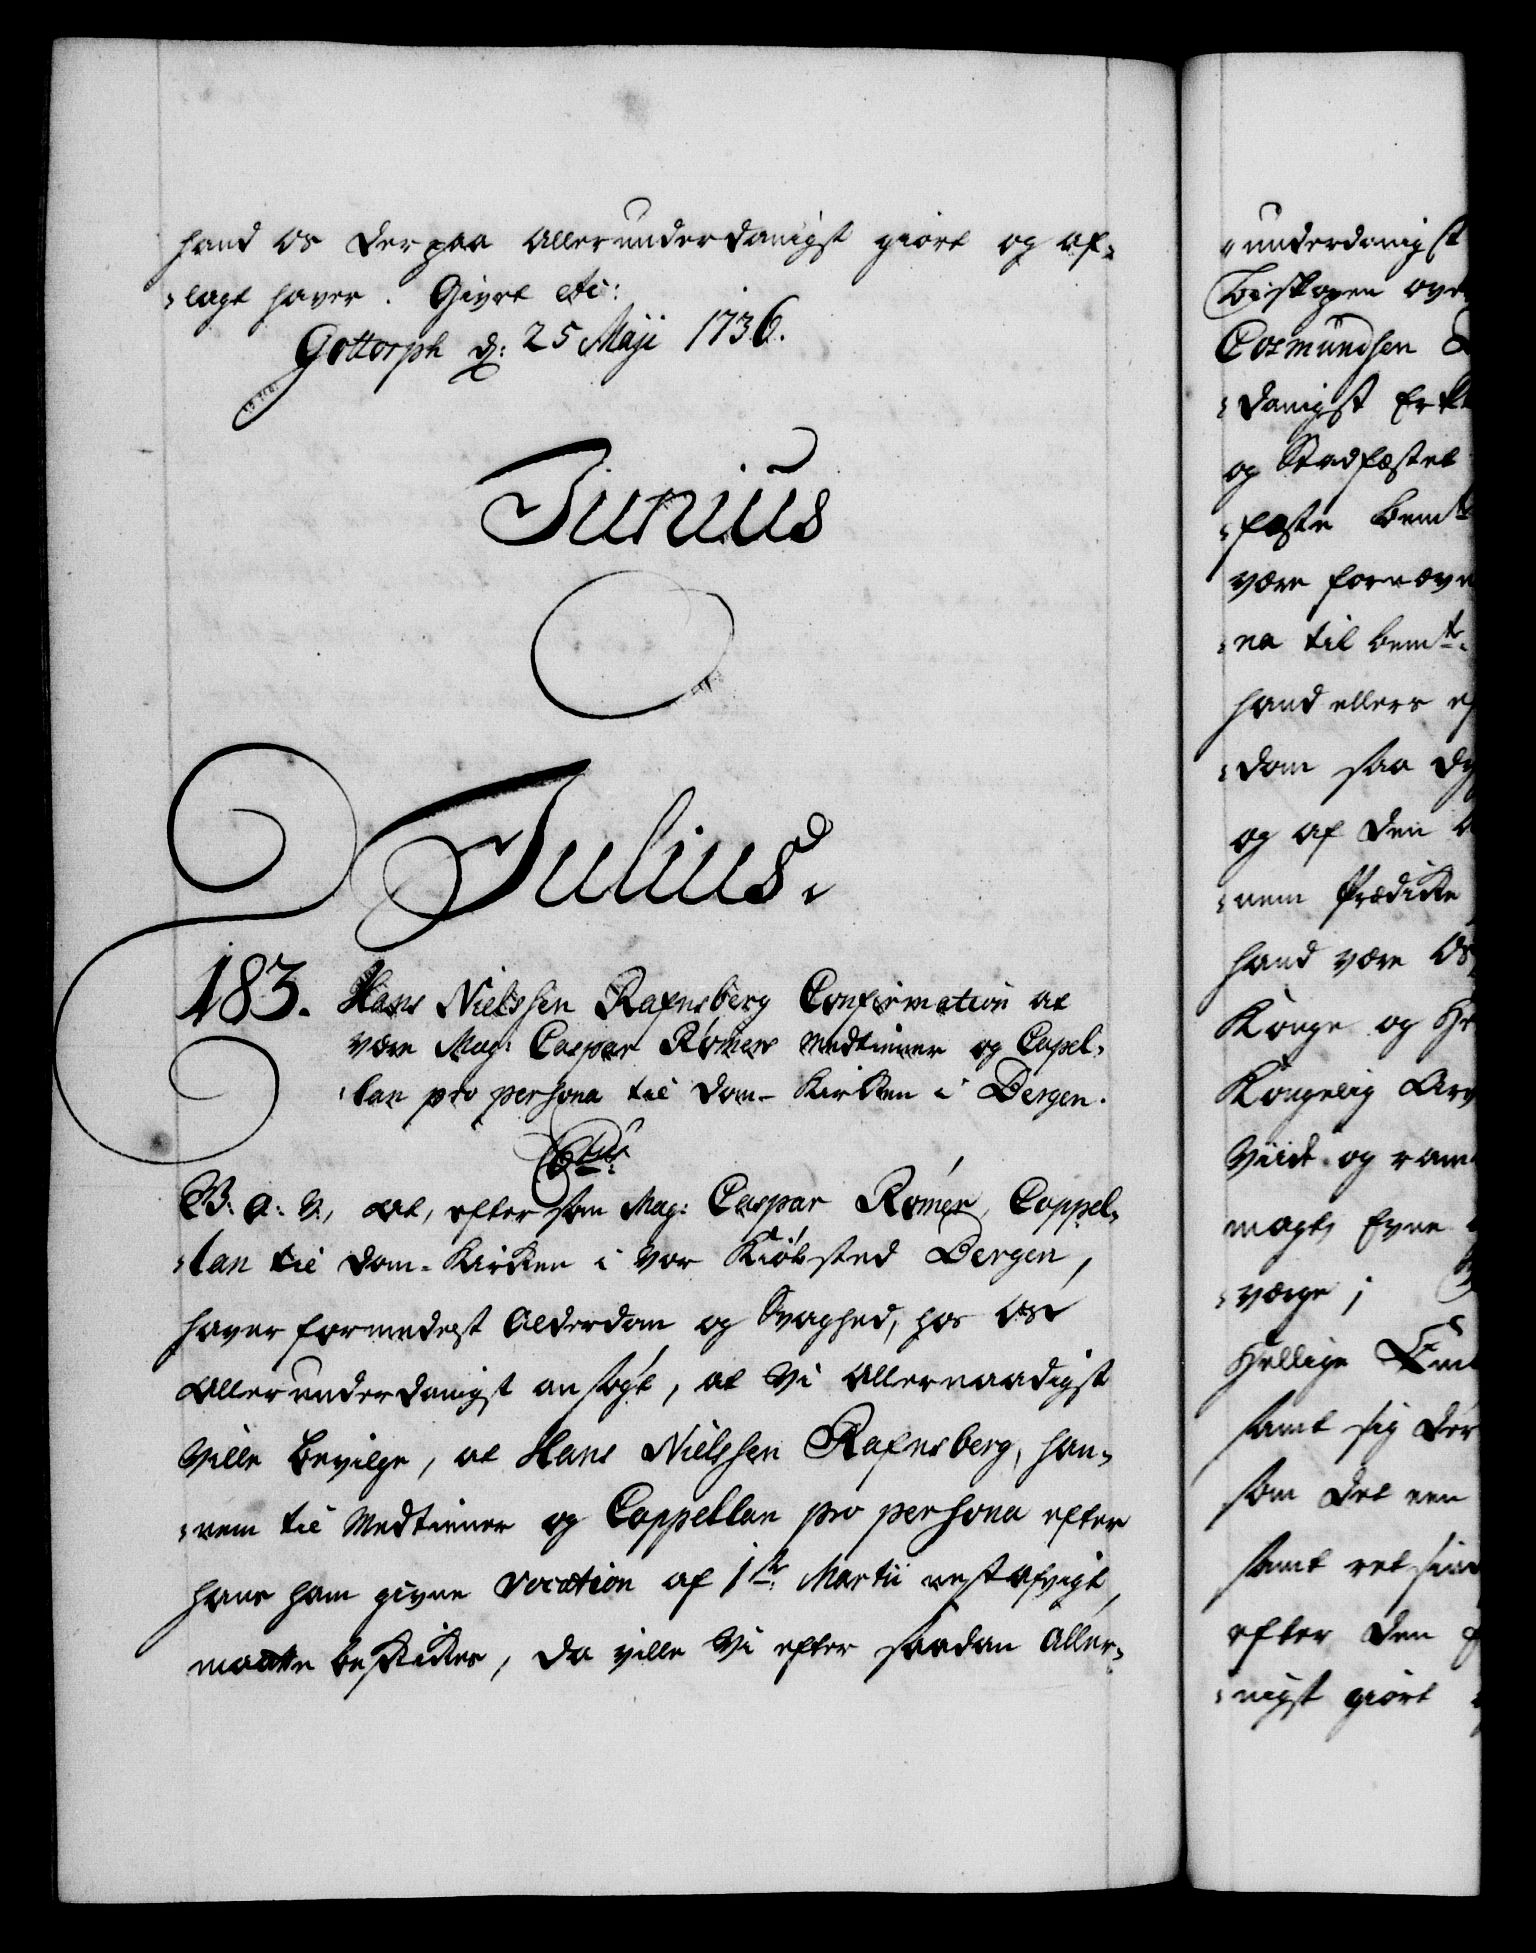 hand os derpaa allerunderdanigst giort og af-
-lagt haver. Givet etc:
Gottorph d: 25 Maji 1736.
Junius
Julius.
183. Hans Nielssen Rafnsberg Confirmation at
være Mag: Caspar Römers Medtiener og Capel-
-lan pro persona til Dom-Kirken i Bergen.
B: a: V., at, eftersom Mag: Caspar Römer, Cappel-
-lan til Dom-Kirken i Vor Kiöbsted Bergen,
haver formedelst Alderdom og Svaghed, hos Os
allerunderdanigst ansögt, at Vi allernaadigst
ville bevilge, at Hans Nielssen Rafnsberg, han-
-nem til Medtiener og Cappellan pro persona efter
hans ham givne Vocation af 1ste Martii nestafvigt,
maatte beskikkes, da ville Vi efter saadan aller-
underdanigst
Biskopen over
Cosmundsen
-danigst
og Stadfæstet
-fæste bemte
være fornævn
-ne til bemte
hand ellers
-dom saa
og af den
-nem Prædike
hand være Os
Konge og
Kongelig Arv
Viide og ram
magt, Evne
-værge;
Hellige
samt sig der
som det een
samt
efter den
-nigst giort